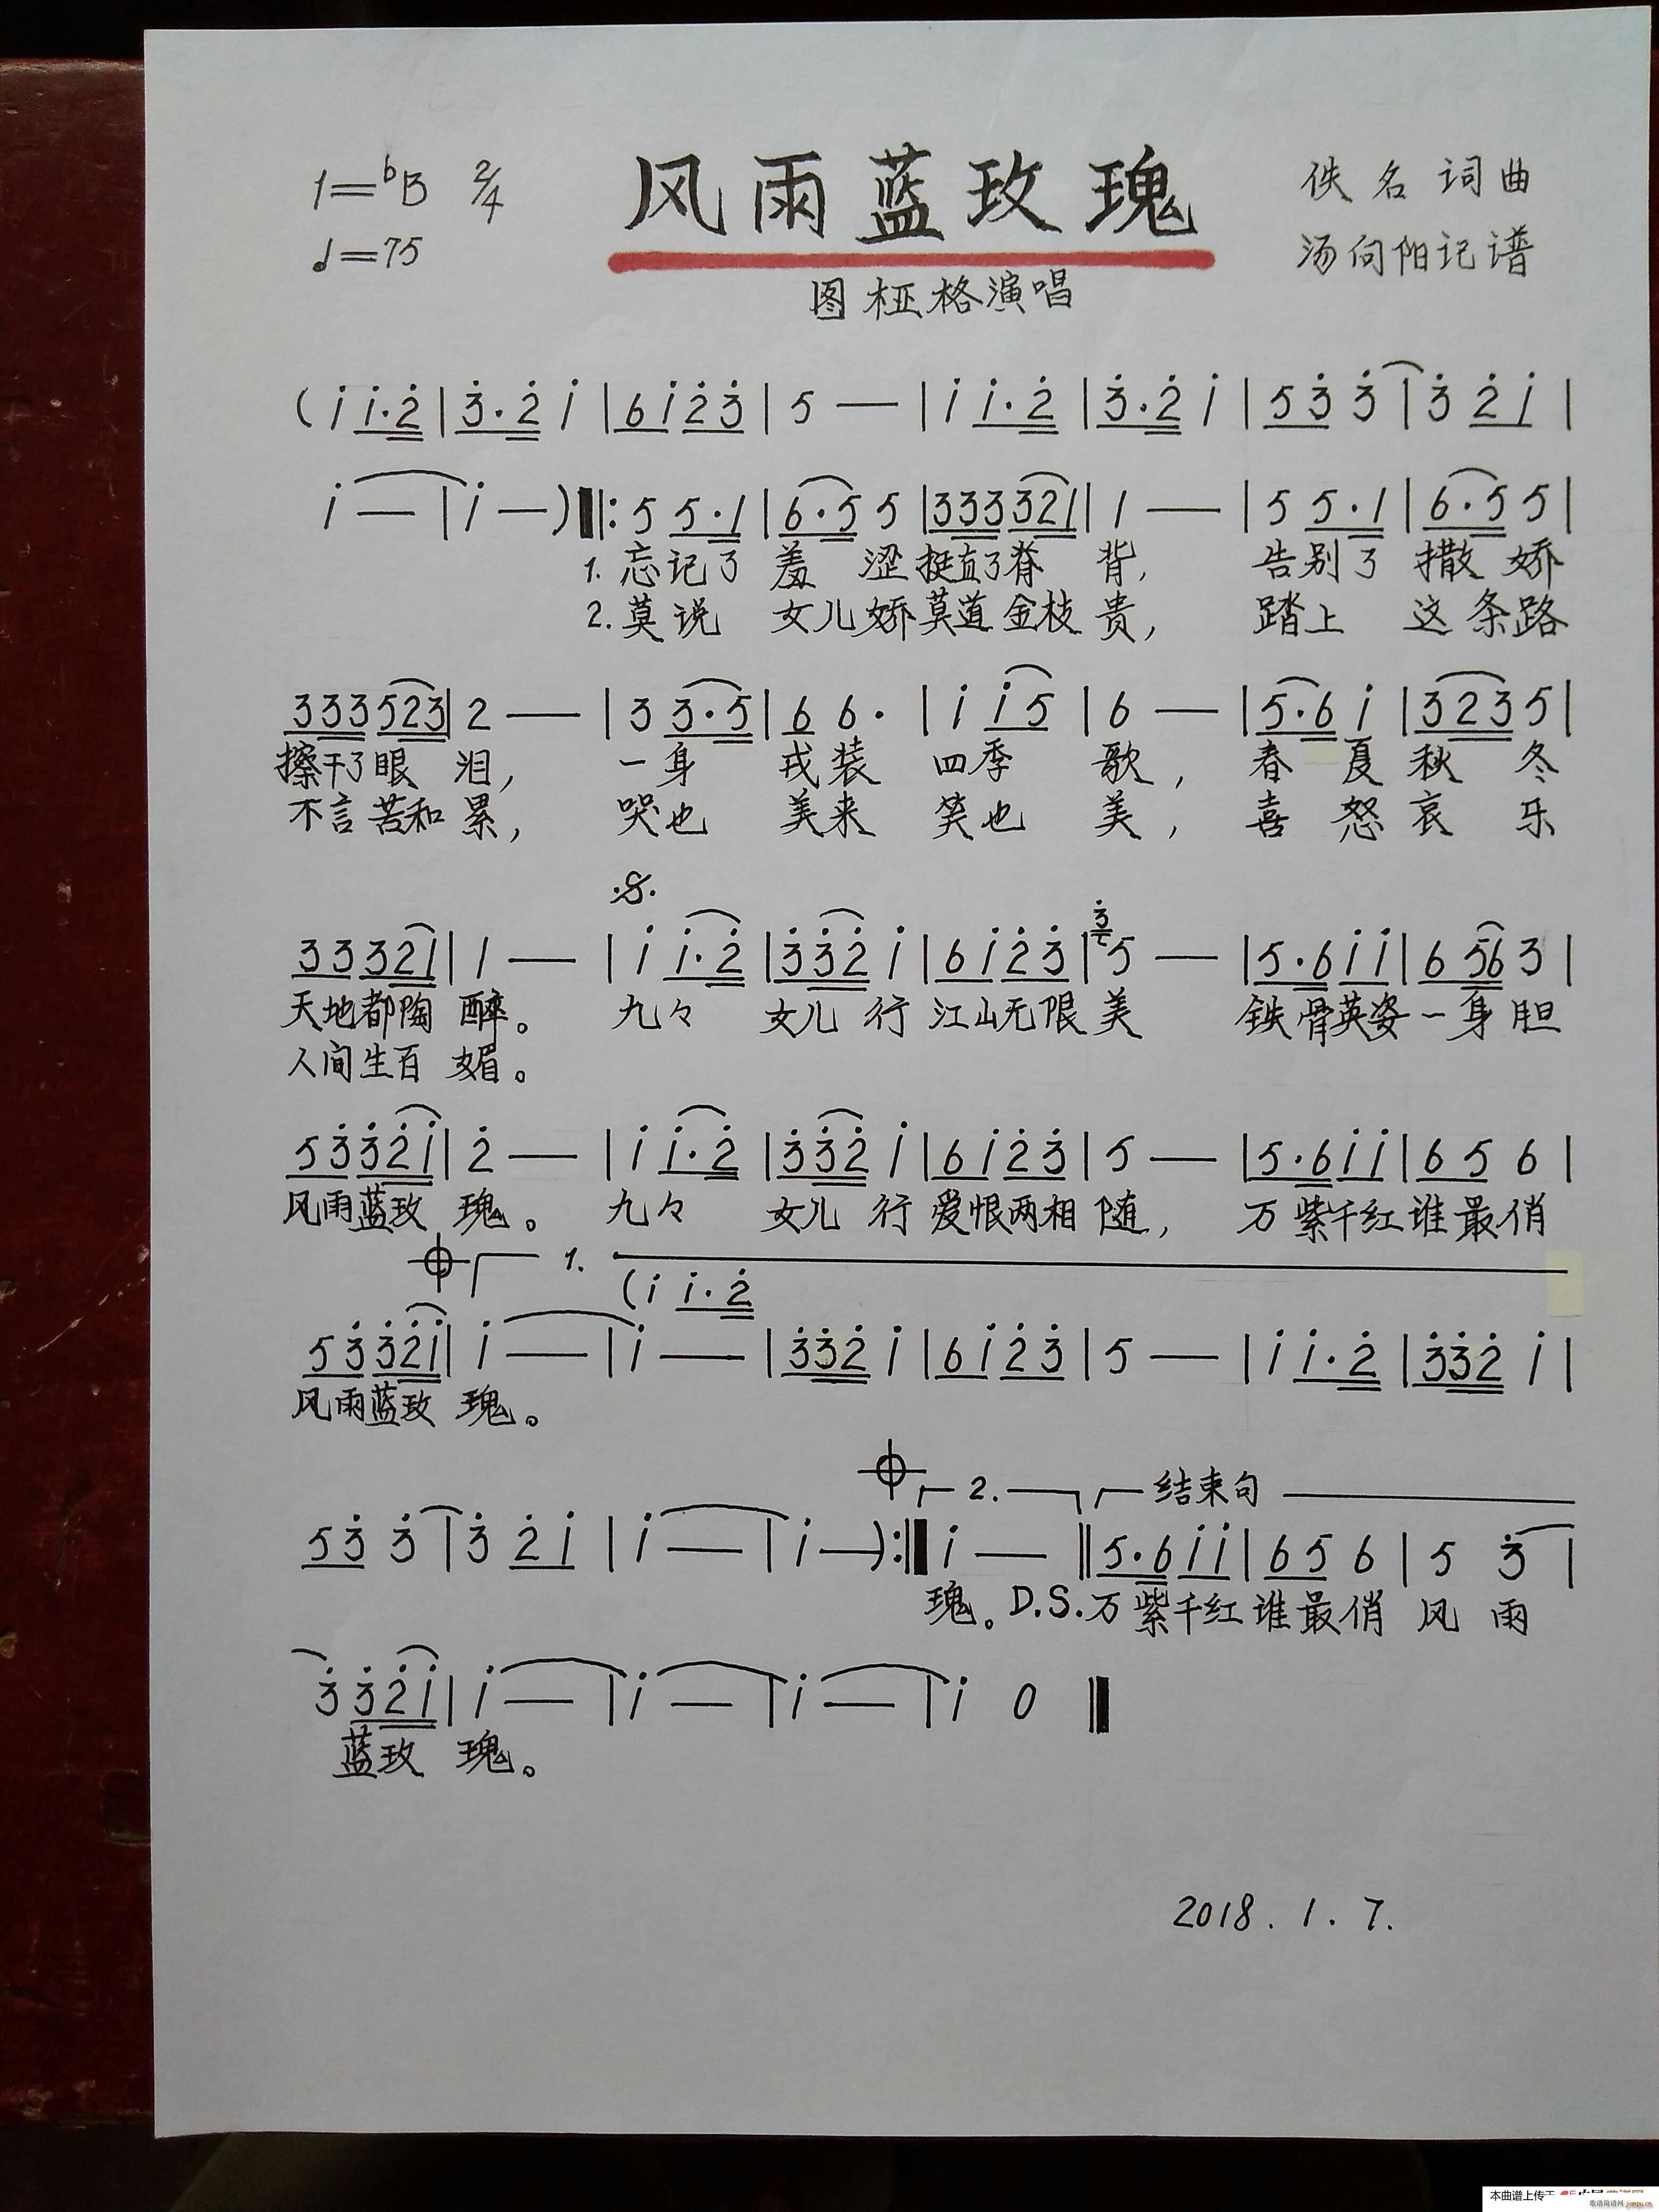 1=♭B 2/4 风雨蓝玫瑰 佚名词曲
♩=75 汤向阳记谱
图桠格演唱
(i̇ i̇·2̇ | 3̇·2̇ i̇ | 6 i̇ 2̇ 3̇ | 5 — | i̇ i̇·2̇ | 3̇·2̇ i̇ | 5 3̇ 3̇ | 3̇ 2̇ i̇ |
i̇ — | i̇ —) ‖: 5 5·1 | 6·5 5 | 3 3 3 3 2 1 | 1 — | 5 5·1 | 6·5 5 |
1. 忘记了 羞 涩 挺直了脊 背, 告别了 撒 娇
2. 莫说 女儿娇 莫道金枝 贵, 踏上 这条路
3 3 3 5 2 3 | 2 — | 3 3·5 | 6 6· | i̇ i̇ 5 | 6 — | 5·6 i̇ | 3 2 3 5 |
擦干了眼 泪, 一身 戎装 四季 歌, 春 夏 秋 冬
不言苦和 累, 哭也 美来 笑也 美, 喜 怒 哀 乐
𝄋
3 3 3 2 1 | 1 — | i̇ i̇·2̇ | 3̇ 3̇ 2̇ i̇ | 6 i̇ 2̇ 3̇ | 3̇ 5 — | 5·6 i̇ i̇ | 6 5 6 3 |
天地都陶 醉。 九々 女儿 行 江山无限 美 铁骨英姿 一身 胆
人间生百 媚。
5 3̇ 3̇ 2̇ i̇ | 2̇ — | i̇ i̇·2̇ | 3̇ 3̇ 2̇ i̇ | 6 i̇ 2̇ 3̇ | 5 — | 5·6 i̇ i̇ | 6 5 6 |
风雨蓝玫 瑰。 九々 女儿 行 爱恨两相 随, 万紫千红 谁最俏
𝄌 1.
(i̇ i̇·2̇
5 3̇ 3̇ 2̇ i̇ | i̇ — | i̇ — | 3̇ 3̇ 2̇ i̇ | 6 i̇ 2̇ 3̇ | 5 — | i̇ i̇·2̇ | 3̇ 3̇ 2̇ i̇ |
风雨蓝玫 瑰。
𝄌 2. 结束句
5 3̇ 3̇ | 3̇ 2̇ i̇ | i̇ — | i̇ —) :‖ i̇ — ‖ 5·6 i̇ i̇ | 6 5 6 | 5 3̇ |
瑰。D.S. 万紫千红 谁最俏 风 雨
3̇ 3̇ 2̇ i̇ | i̇ — | i̇ — | i̇ — | i̇ 0 ‖
蓝玫 瑰。
2018.1.7.
本曲谱上传于